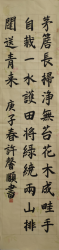 茅簷長掃淨無苔花木成畦手
自栽一水護田将綠繞兩山排
闥送青來 庚子春許馨頤書